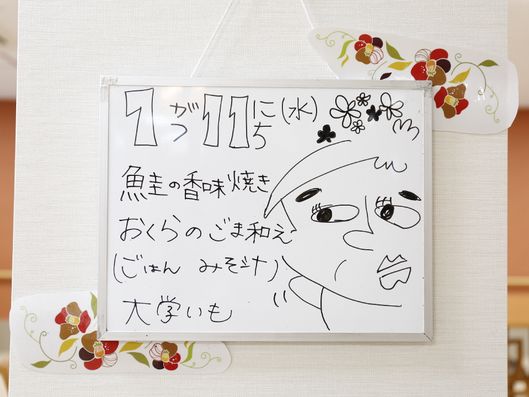 1がつ11にち(水)
鮭の香味焼き
おくらのごま和え
(ごはん みそ汁)
大学いも